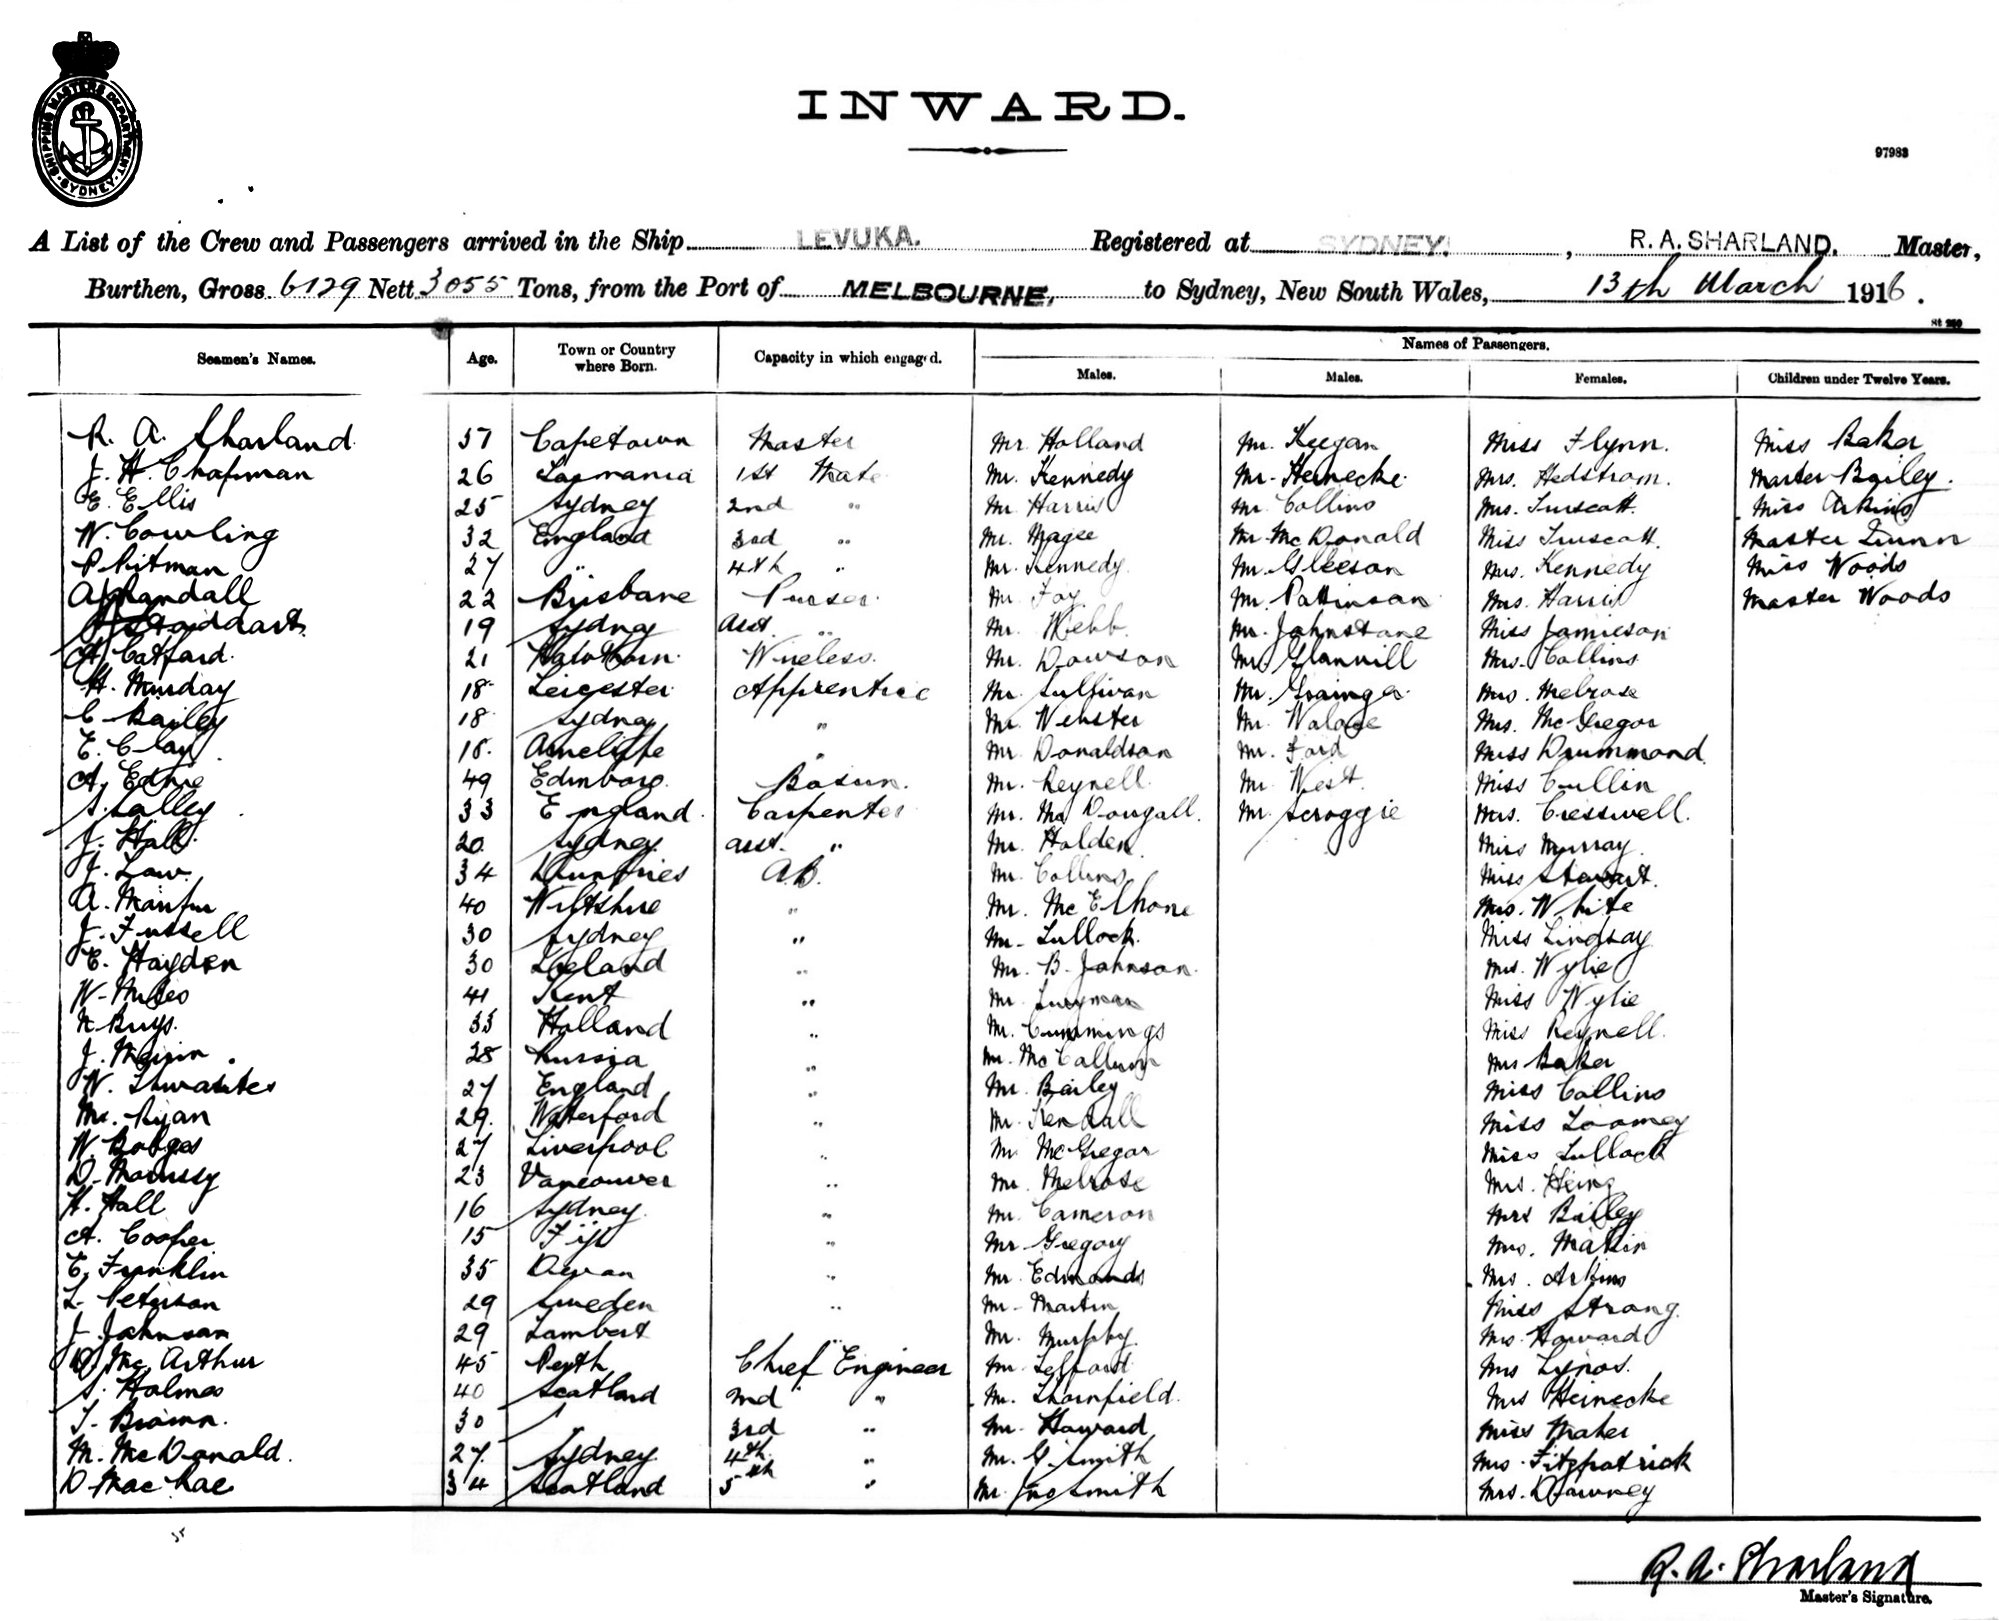 INWARD.
SHIPPING MASTERS DEPARTMENT. SYDNEY.
97983
A List of the Crew and Passengers arrived in the Ship LEVUKA. Registered at SYDNEY. , R. A. SHARLAND. Master,
Burthen, Gross 6129 Nett 3055 Tons, from the Port of MELBOURNE, to Sydney, New South Wales, 13th March 1916.
Seamen's Names. Age. Town or Country where Born. Capacity in which engaged. Names of Passengers.
Males. Males. Females. Children under Twelve Years.
R. A. Sharland 37 Capetown Master Mr Holland Mr. Keegan Miss Flynn. Miss Baker
J. H. Chapman 26 Tasmania 1st Mate Mr. Kennedy Mr. Heinecke Mrs. Hedstrom. Master Bailey.
E. Ellis 25 Sydney 2nd " Mr Harris Mr Collins Mrs. Truscott. Miss Arkins
W. Cowling 32 England 3rd " Mr. Magee Mr. McDonald Miss Truscott. Master
P. Pitman 27 " 4th " Mr. Kennedy. Mr. Gleeson Mrs. Kennedy Miss Woods
Randall 22 Brisbane Purser Mr Foy Mr. Pattinson Mrs. Harris Master Woods
Stoddart 19 Sydney Asst. " Mr. Webb. Mr. Johnstone Miss Jamieson
A. Catford. 21 Hawthorn. Wireless. Mr. Dowson Mr. Glanvill Mrs. Collins
H. Munday 18 Leicester Apprentice Mr. Sullivan Mr. Grainger Mrs. Melrose
C Bailey 18 Sydney " Mr. Webster Mr. Walace Mrs. McGregor
E. Clay 18. Arncliffe " Mr. Donaldson Mr. Ford Miss Drummond
A. Ednie 49 Edinboro. Bosun. Mr. Reynell. Mr. West. Miss Cullin
S. Lalley 33 England. Carpenter Mr. McDougall. Mr. Scroggie Mrs. Cresswell.
J. Hall. 20 Sydney asst. " Mr. Holden. Miss Murray.
J. Law. 34 Dumfries A.B. Mr. Collins. Miss Stewart.
A. 40 Wiltshire " Mr. McElhone Mrs. White
J. Fussell 30 Sydney " Mr. Tullock. Miss Lindsay
E. Hayden 30 Ireland " Mr. B. Johnson. Mrs. Wylie
W. Miles 41 Kent " Mr. Miss Wylie
N. Buys. 33 Holland " Mr. Cummings Miss Reynell.
J. 28 Russia " Mr. McCallum Mrs Baker
W. Thwaites 27 England " Mr. Bailey Miss Collins
Ryan 29. Waterford " Mr. Kendall Miss Toomey
W. 27 Liverpool " Mr McGregor Miss Tullock
D. 23 Vancouver " Mr. Melrose Mrs. Heing
H. Hall 16 Sydney. " Mr. Cameron Mrs Bailey
A. Cooper 15 Fiji " Mr Gregory Mrs. Makin
E. Franklin 35 Devon " Mr. Edmonds Mrs. Arkins
L. Peterson 29 Sweden " Mr. Martin Miss Strong.
J. Johnson 29 Lambert " Mr. Murphy. Mrs. Howard
D. McArthur 45 Perth Chief Engineer Mr. Mrs Lynos.
S. Holmes 40 Scotland 2nd " Mr. Thornfield. Mrs Heinecke
T. Brown. 30 " 3rd " Mr. Howard Miss Maher
M. McDonald. 27. Sydney 4th " Mr. G. Smith Mrs. Fitzpatrick
D MacRae 34 Scotland 5th " Mr. Jno Smith Mrs. Downey
R. A. Sharland
Master's Signature.